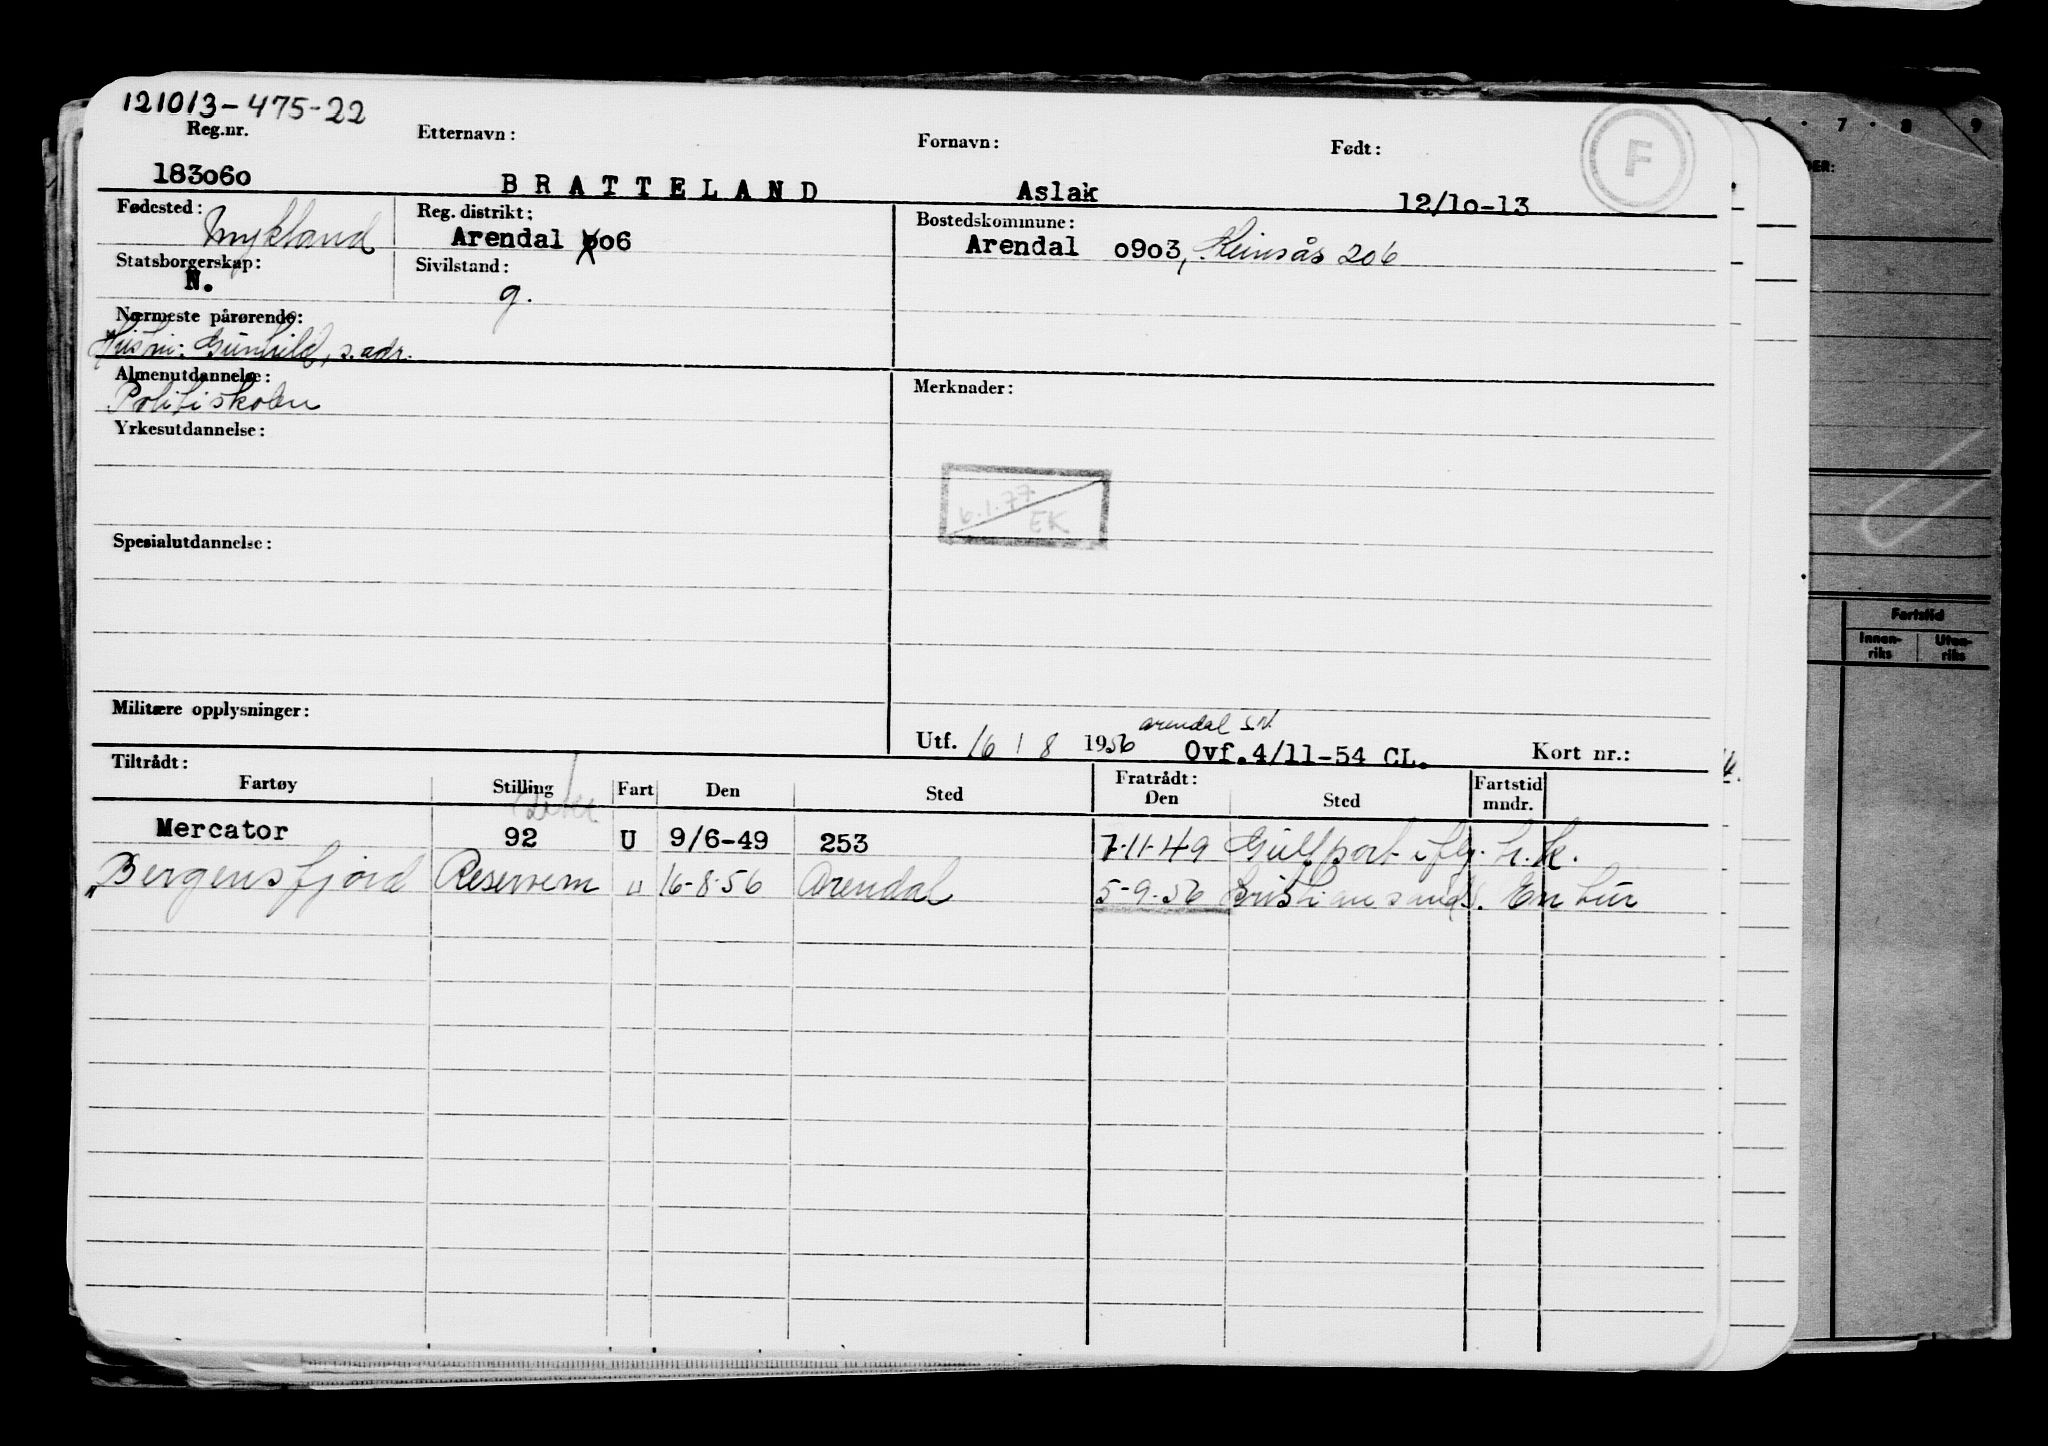 121013-475-22
Reg.nr. Etternavn: Fornavn: Født: F
183060 BRATTELAND Aslak 12/10-13
Fødested: Mykland Reg. distrikt: Arendal 006 Bostedskommune: Arendal 0903, Kinsås 206
Statsborgerskap: N. Sivilstand: g.
Nærmeste pårørende:
Gunhild, s. adr.
Almenutdannelse: Merknader:
Politiskolen
Yrkesutdannelse:
6.1.77
EK
Spesialutdannelse:
Militære opplysninger:
Arendal
Utf. 16/8 1956 Ovf. 4/11-54 CL. Kort nr.:
Tiltrådt: Fratrådt:
Fartøy Stilling Fart Den Sted Den Sted Fartstid mndr.
Mercator 92 U 9/6-49 253 7-11-49 Gulfport i flg. h.k.
"Bergensfjord Reservem " 16-8-56 Arendal 5-9-56 Kristiansand S. En tur
6 · 7 · 8 9
Fartstid
Innen-
riks
Uten-
riks